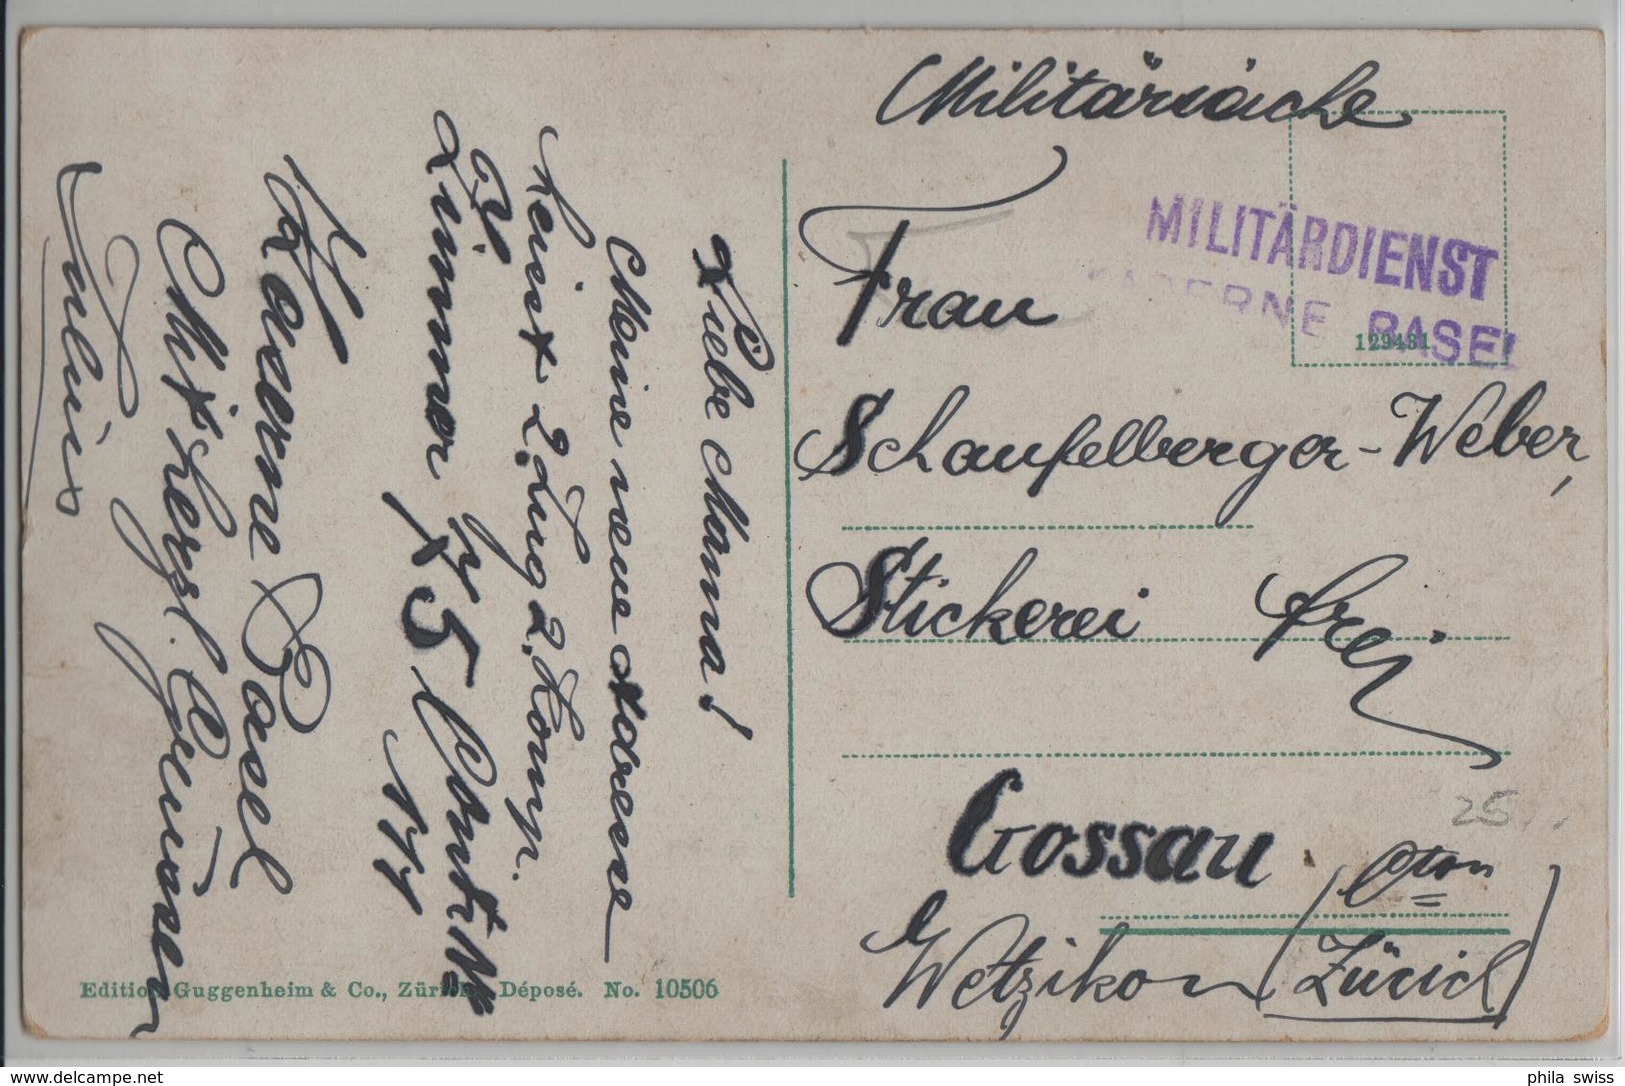 Militärsache
MILITÄRDIENST
KASERNE BASEL
129431
Frau
Schaufelberger-Weber,
Stickerei frei
25
Gossau
Cton
b Wetzikon (Zürich)
Liebe Mama!
Meine neue Adresse
heisst 2. Zug 2. Komp.
Zimmer 75
Kaserne Basel
Mit herzl. Grüssen
Julius
Edition Guggenheim & Co., Zürich, Déposé. No. 10506
phila swiss